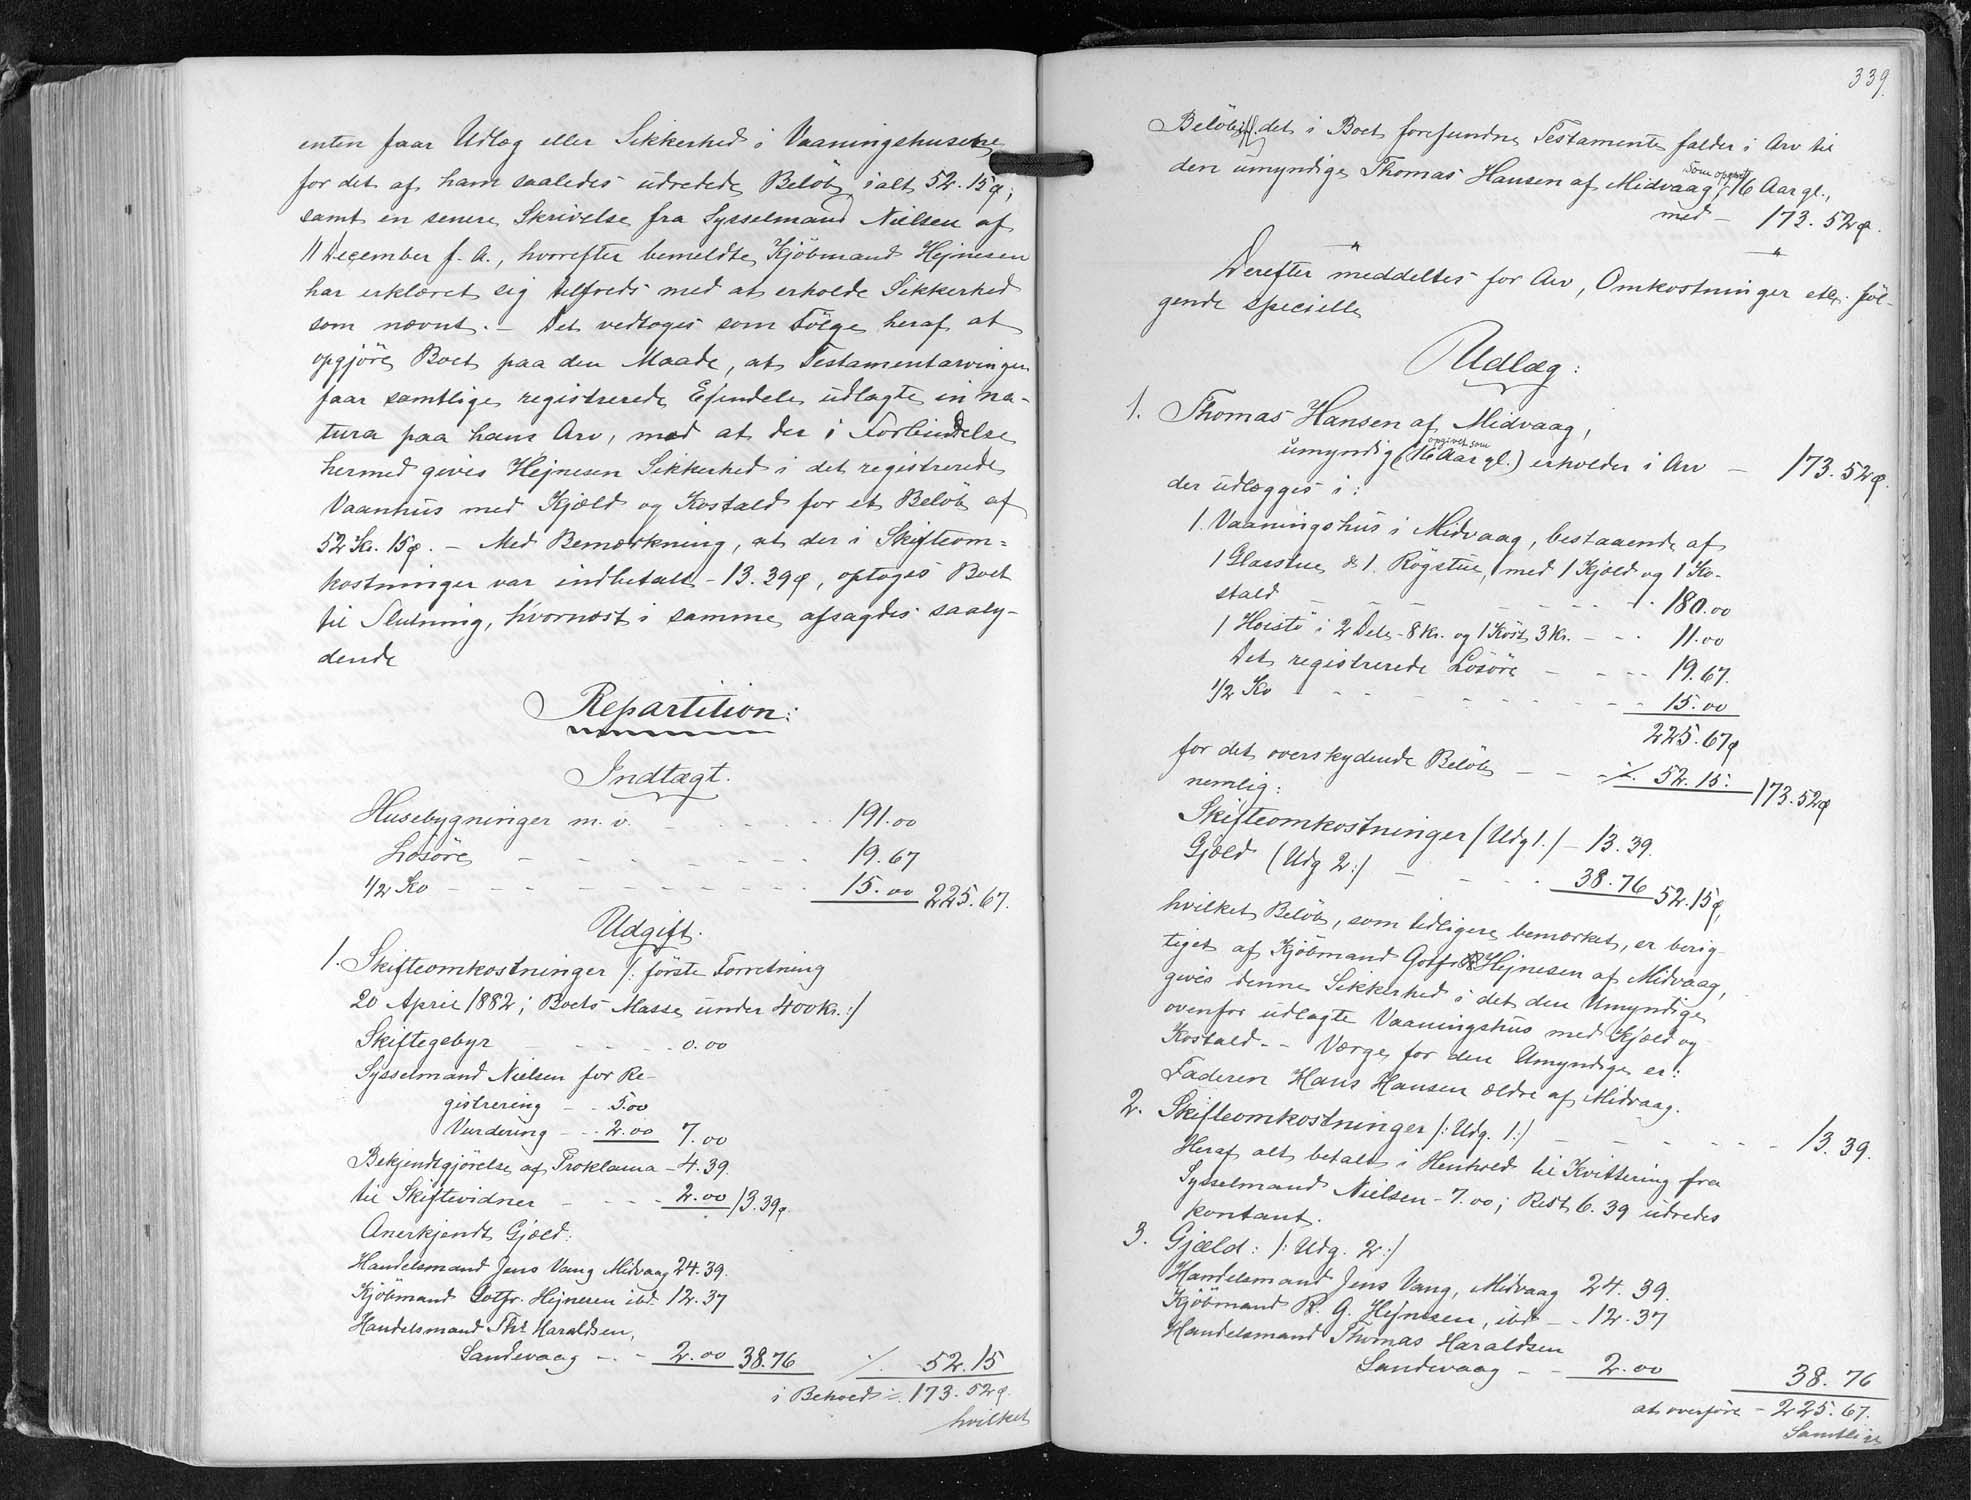 enten faar Udlæg eller Sikkerhed i Vaaningshusene
for det af ham saaledes udredede Beløb ialt 52.15ø,
samt en senere Skrivelse fra Sysselmand Nielsen af
11 December f. A., hvorefter bemeldte Kjöbmand Hejnesen
har erklæret sig tilfreds med at erholde Sikkerhed
som nævnt. – Det vedtoges som Fölge heraf at
opgjöre Boet paa den Maade, at Testamentarvingen
faar samtlige registrerede Ejendele udlagte in na-
tura paa hans Arv, mod at der i Forbindelse
hermed gives Hejnesen Sikkerhed i det registrerede
Vaanhus med Kjæld og Kostald for et Belöb af
52 Kr. 15ø. – Med Bemærkning, at der i Skifteom=
kostninger var indbetalt – 13.39ø, optoges Boet
til Slutning, hvornæst i samme afsagdes saaly-
dende
Repartition:
Indtægt.
Husebygninger m. v. 191.00
Lösöre 19.67
1/2 Ko 15.00 225.67.
Udgift.
1. Skifteomkostninger /: förste Forretning
20 April 1882; Boets Masse under 400 Kr. :/
Skiftegebyr 0.00
Sysselmand Nielsen for Re-
gistrering 5.00
Vurdering 2.00 7.00
Bekjendtgjörelse af Proklama – 4.39
til Skiftevidner 2.00 13.39ø
Anerkjendt Gjæld:
Handelsmand Jens Vang Midvaag 24.39.
Kjöbmand Gotfr. Hejnesen ibd. 12.37
Handelsmand Ths. Haraldsen,
Sandevaag – 2.00 38.76 ./. 52.15
i Behold = 173.52ø.
hvilket
339.
Belöb det i Boet forefundne Testamente falder i Arv til
den umyndige Thomas Hansen af Midvaag, som opgivet 16 Aar gl.,
med – 173.52ø.
Derefter meddeltes for Arv, Omkostninger etc. föl-
gende specielle
Udlæg:
1. Thomas Hansen af Midvaag,
umyndig (opgivet som 16 Aar gl.) erholder i Arv – 173.52ø.
der udlægges i:
1 Vaaningshus i Midvaag, bestaaende af
1 Glasstue & 1 Rögstue, med 1 Kjæld og 1 Ko-
stald 180.00
1 i 2 Dele – 8 Kr. og 1 3 Kr. 11.00
Det registrerede Lösöre 19.67.
1/2 Ko 15.00
225.67ø
for det overskydende Belöb ./. 52.15. 173.52ø
nemlig:
Skifteomkostninger /Udg 1./ – 13.39.
Gjæld (Udg 2:/ 38.76 52.15ø,
hvilket Belöb, som tidligere bemærket, er berig-
tiget af Kjöbmand Gotfr. Hejnesen af Midvaag,
gives denne Sikkerhed i det den Umyndige
ovenfor udlagte Vaaningshus med Kjæld og
Kostald. – Værge for den Umyndige er:
Faderen Hans Hansen ældre af Midvaag.
2. Skifteomkostninger /: Udg. 1:/ 13.39.
Heraf alt betalt i Henhold til Kvittering fra
Sysselmand Nielsen – 7.00; Rest 6.39 udredes
kontant.
3. Gjæld: /: Udg. 2:/
Handelsmand Jens Vang, Midvaag 24.39.
Kjöbmand R. G. Hejnesen, ibd – 12.37
Handelsmand Thomas Haraldsen
Sandevaag – 2.00 38.76
at overföre – 225.67.